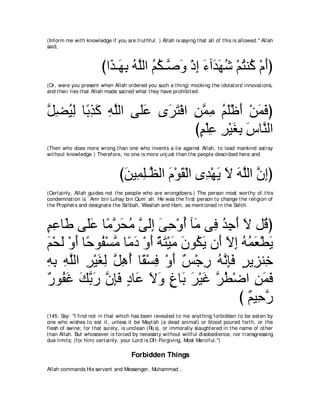 (Inform me with knowledge if you are truthful. ) Allah is saying that all of this is allowed." Allah
said,
(أَمْ كُنتُمْ شُهَدَآءَ إِذْ وَصَّـكُمُ اللَّهُ بِهَـذَا)
(Or, were you present when Allah ordered you such a thing) mocking the idolators' innovations,
and their lies that Allah made sacred what they have prohibited.
(فَمَنْ أَظْلَمُ مِمَّنِ افْتَرَى عَلَى اللَّهِ كَذِبًا لِيُضِلَّ
النَّاسَ بِغَيْرِ عِلْمٍ)
(Then who does more wrong than one who invents a lie against Allah, to lead mankind astray
without knowledge.) Therefore, no one is more unjust than the people described here and
(إِنَّ اللَّهَ لاَ يَهْدِى الْقَوْمَ الظَّـلِمِينَ)
(Certainly, Allah guides not the people who are wrongdoers.) The person most worthy of this
condemnation is `Amr bin Luhay bin Qum`ah. He was the first person to change the religion of
the Prophets and designate the Sa'ibah, Wasilah and Ham, as mentioned in the Sahih.
(قُل لاَ أَجِدُ فِى مَآ أُوْحِىَ إِلَىَّ مُحَرَّمًا عَلَى طَاعِمٍ
يَطْعَمُهُ إِلاَ أَن يَكُونَ مَيْتَةً أَوْ دَمًا مَّسْفُوحًا أَوْ لَحْمَ
خِنزِيرٍ فَإِنَّهُ رِجْسٌ أَوْ فِسْقًا أُهِلَّ لِغَيْرِ اللَّهِ بِهِ
فَمَنِ اضْطُرَّ غَيْرَ بَاغٍ وَلاَ عَادٍ فَإِنَّ رَبَّكَ غَفُورٌ
رَّحِيمٌ )
(145. Say: "I find not in that which has been revealed to me anything forbidden to be eaten by
one who wishes to eat it, unless it be Maytah (a dead animal) or blood poured forth, or the
flesh of swine; for that surely, is unclean (Rijs), or immorally slaughtered in the name of other
than Allah. But whosoever is forced by necessity without willful disobedience, nor transgressing
due limits; (for him) certainly, your Lord is Oft-Forgiving, Most Merciful.")
Forbidden Things
Allah commands His servant and Messenger, Muhammad ,